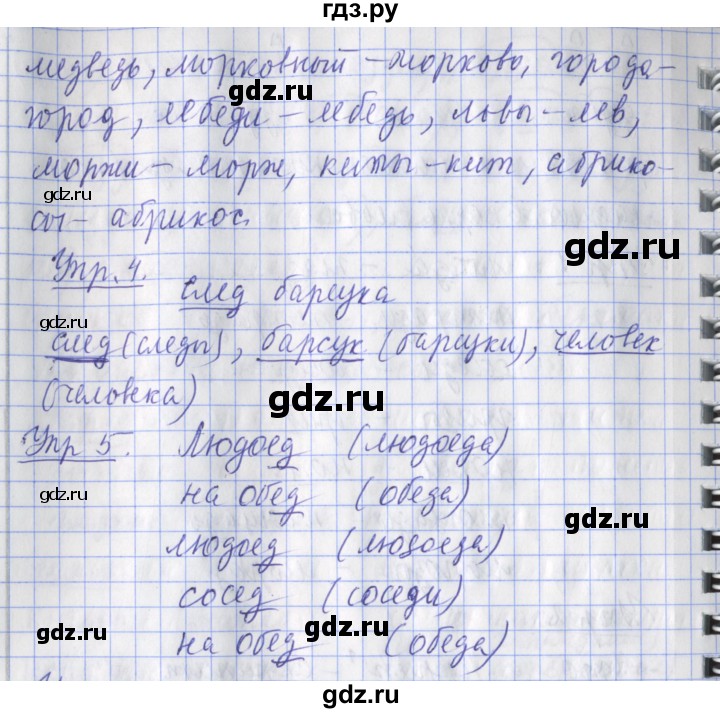 гдз.ру
медведь, морковный - морковь, города-
город, лебеди - лебедь, львы - лев,
gdz.ru
моржи - морж, киты - кит, абрико-
gdz.ru
gdz.ru
сы - абрикос.
gdz.ru
Упр. 4.
след барсука
gdz.ru
след (следы), барсук (барсуки), человек
(человека)
gdz.ru
Упр 5. Людоед (людоеда)
gdz.ru
на обед (обеда)
gdz.ru
людоед (людоеда)
сосед (соседи)
на обед (обеда)
gdz.ru
gdz.ru